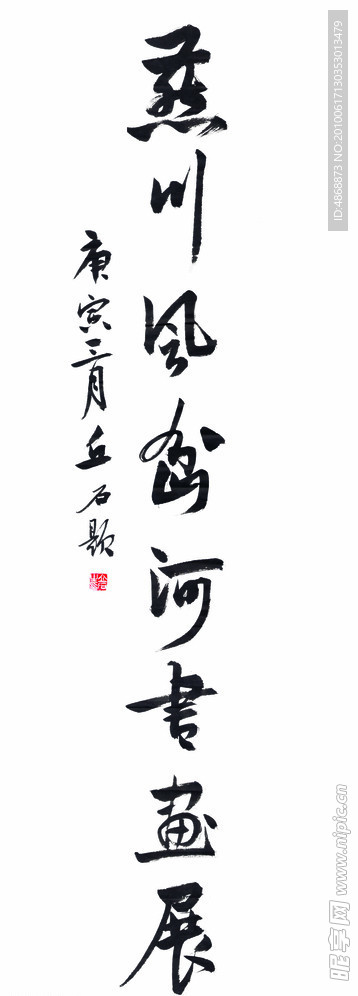 燕川风岔河书画展
庚寅三月丘石题
ID:4868873 NO:20100617130353013479
昵享网 www.nipic.cn